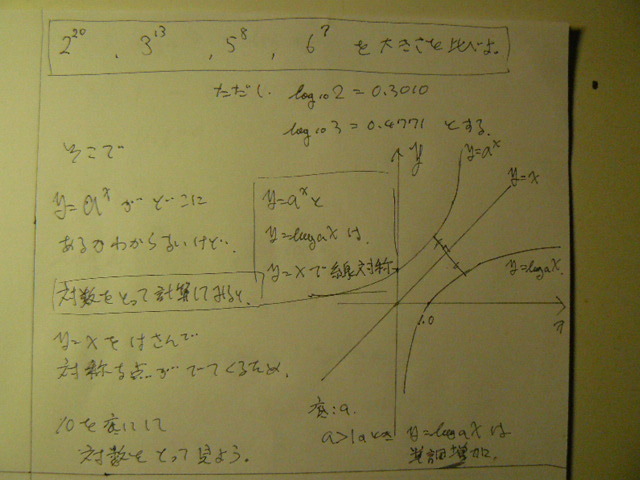 2^20 , 3^13 , 5^8 , 6^7 を大きさを比べよ。
ただし log10 2 = 0.3010
log10 3 = 0.4771 とする。
そこで
y=a^x がどこに
あるかわからないけど、
対数をとって計算してみると、
y=x をはさんで
対称な点がでてくるため、
10を底にして
対数をとって見よう。
y=a^x と
y=logax は、
y=x で線対称
y
y=a^x
y=x
y=logax
1.0
x
底:a
a>1のとき y=logax は
単調増加。